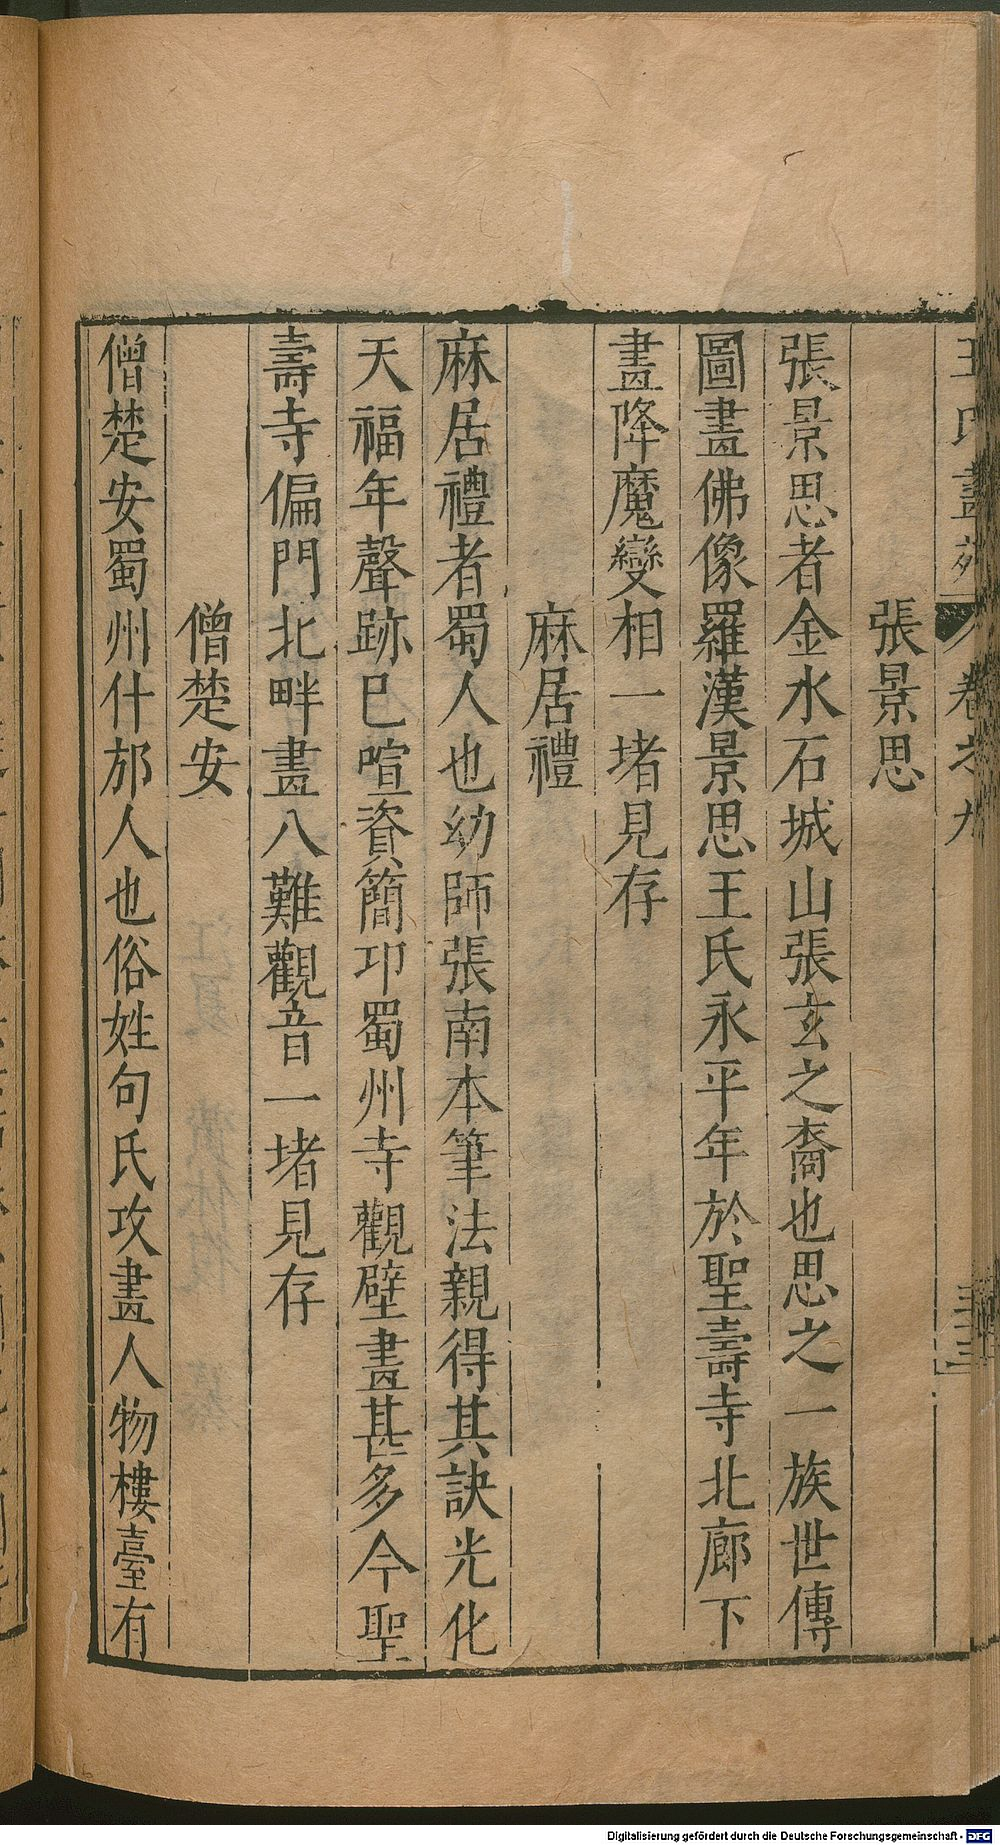 王氏畫苑 卷之九
張景思
張景思者金水石城山張玄之裔也思之一族世傳
圖畫佛像羅漢景思王氏永平年於聖壽寺北廊下
畫降魔變相一堵見存
麻居禮
麻居禮者蜀人也幼師張南本筆法親得其訣光化
天福年聲跡巳喧資簡邛蜀州寺觀壁畫甚多今聖
壽寺偏門北畔畫八難觀音一堵見存
僧楚安
僧楚安蜀州什邡人也俗姓句氏攻畫人物樓臺有
Digitalisierung gefördert durch die Deutsche Forschungsgemeinschaft - DFG